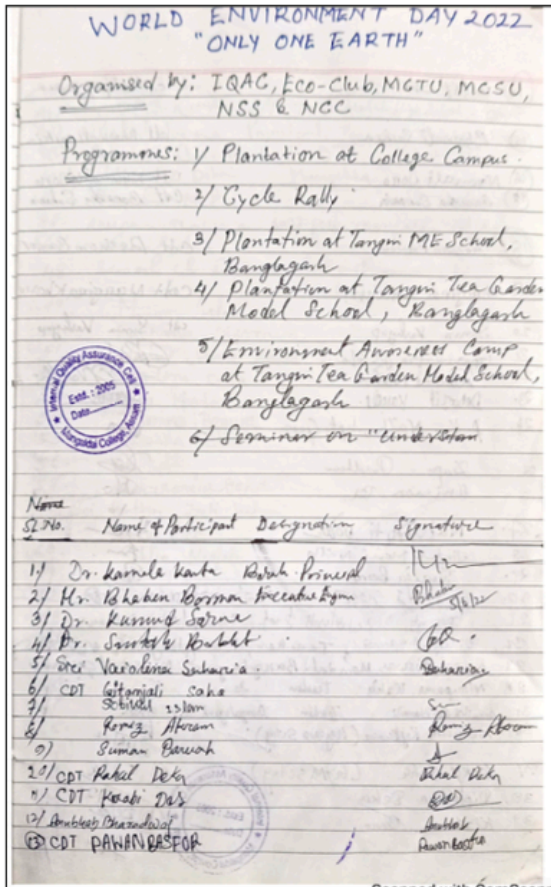 WORLD ENVIRONMENT DAY 2022
"ONLY ONE EARTH"
Organised by: IQAC, Eco-Club, MCTU, MCSU,
NSS & NCC
Programmes: 1/ Plantation at College Campus.
2/ Cycle Rally
3/ Plantation at Tangni ME School,
Banglagarh
4/ Plantation at Tangni Tea Garden
Model School, Banglagarh
5/ Environment Awareness Camp
at Tangni Tea Garden Model School,
Banglagarh
6/ Seminar on "understan
Internal Quality Assurance Cell
Estd. : 2005
Date
Mangaldai College, Assam
Name
Sl. No. Name of Participant Designation Signature
1/ Dr. Kamala Kanta Borah - Principal
2/ Mr. Bhaben Borman Executive
5/6/22
3/ Dr. Kumud
4/ Dr.
5/ Saharia
6/ CDT Gitanjali Saha
7/ Islam
8/ Ramiz Akram Ramiz Akram
9) Suman Baruah
10/ CDT Rahul Deka Rahul Deka
11/ CDT Karabi Das
12/ Bharadwaj
13 CDT PAWAN BASFOR